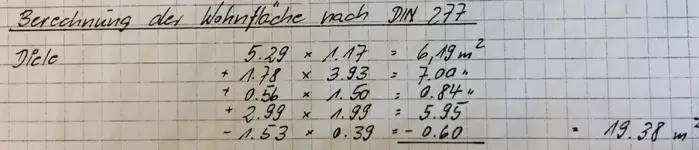 Berechnung der Wohnfläche nach DIN 277
Diele 5.29 × 1.17 = 6,19 m²
+ 1.78 × 3.93 = 7.00 "
+ 0.56 × 1.50 = 0.84 "
+ 2.99 × 1.99 = 5.95
- 1.53 × 0.39 = - 0.60 = 19.38 m²